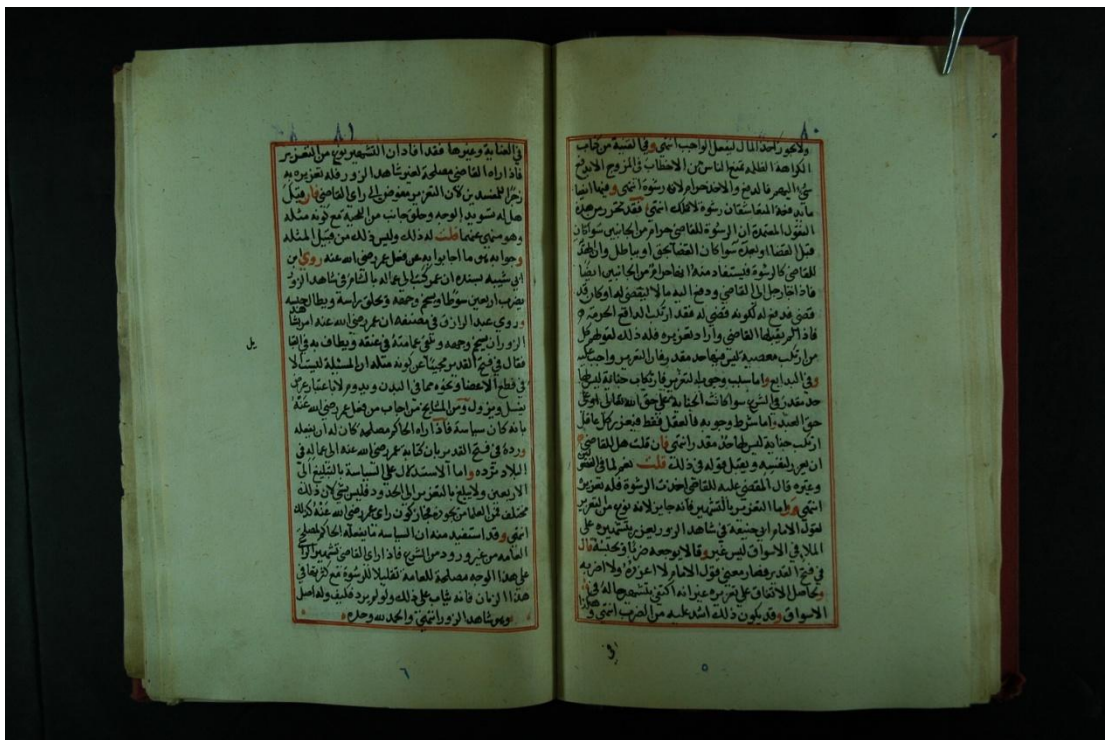 ٨٠
ولا يجوز اخذ المال ليفعل الواجب انتهى وفي القنية من كتاب
الكراهة الظلمة تمنع الناس من الاحتطاب في المروج الا بدفع
شيء اليهم فالدفع والاخذ حرام لانه رشوة انتهى وفيها ايضا
ما يدفعه المتعاشقان رشوة لا تملك انتهى فقد تحرر من هذه
النقول المعتمدة ان الرشوة للقاضي حرام من الجانبين سواء كان
قبل القضا او بعده سوا كان القضا بحق او بباطل وان الهدية
للقاضي كالرشوة فيستفاد منه انها حرام من الجانبين ايضا
فاذا جا رجل الى القاضي ودفع اليه مالا ليقضي له او كان قد
قضى فدفع له لكونه قضى له فقد ارتكب الدافع الحرمة
فاذا لم يقبلها القاضي واراد تعزيره فله ذلك لقولهم كل
من ارتكب معصية ليس فيها حد مقدر فان التعزير واجب عليه
وفي البدايع واما سبب وجوب التعزير فارتكاب جناية ليس لها
حد مقدر في الشرع سوا كانت الجناية على حق الله تعالى او على
حق العبد واما شرط وجوبه فالعقل فقط فيعزر كل عاقل
ارتكب جناية ليس لها حد مقدر انتهى فان قلت هل للقاضي
ان يعزر لنفسه ويقبل قوله في ذلك قلت نعم لما في القنية
وغيره قال المقضي عليه للقاضي اخذت الرشوة فله تعزيره
انتهى واما التعزير بالتشهير فانه جايز لانه نوع من التعزير
لقول الامام ابي حنيفة في شاهد الزور يعزر بتشهيره على
الملا في الاسواق ليس غير وقالا نوجعه ضربا ونحبسه قال
في فتح القدير فصار معنى قول الامام لا اعزره ولا اضربه
وحاصل الاتفاق على تعزيره غير انه اكتفى بتشهير حاله في
الاسواق وقد يكون ذلك اشد عليه من الضرب انتهى وهكذا
في
٥
٨١
في العناية وغيرها فقد افاد ان التشهير نوع من التعزير
فاذا راه القاضي مصلحة لغير شاهد الزور فله تعزيره به
زجرا للمفسدين لان التعزير مفوض الى راي القاضي فان قيل
هل له تسويد الوجه وحلق جانب من اللحية مع كونه مثلة
وهو منهي عنها قلت له ذلك وليس ذلك من قبيل المثلة
وجوابه هو ما اجابوا به عن فعل عمر رضي الله عنه روى ابن
ابي شيبة بسنده ان عمر كتب الى عماله بالشام في شاهد الزور
يضرب اربعين سوطا ويسخم وجهه ويحلق راسه ويطال حبسه
وروى عبد الرازق في مصنفه ان عمر رضي الله عنه امر بشاهد
الزور ان يسخم وجهه وتلقى عمامته في عنقه ويطاف به في القبا
يل
فقال في فتح القدير مجيبا عن كونه مثلة ان المثلة ليست الا
في قطع الاعضا ونحوه مما في البدن ويدوم لا باعتبار عرض
يغسل ويزول ومن المشايخ من اجاب عن فعل عمر رضي الله عنه
بانه كان سياسة فاذا راه الحاكم مصلحة كان له ان يفعله
ورده في فتح القدير بان كتابة عمر رضي الله عنه الى عماله في
البلاد ترده واما الاستدلال على السياسة بالتبليغ الى
الاربعين ولا يبلغ بالتعزير الى الحدود فليس بشي لان ذلك
مختلف فمن العلما من يجوزه فجاز كون راي عمر رضي الله عنه كذلك
انتهى وقد استفيد منه ان السياسة ما يفعله الحاكم لمصلحة
العامة من غير ورود من الشرع فاذا راى القاضي تشهير الراشي
على هذا الوجه مصلحة للعامة تقليلا للرشوة مع كثرتها في
هذا الزمان فانه يثاب على ذلك ولو لم يرد فكيف وله اصل
وهو شاهد الزور انتهى والحمد لله وحده
٦